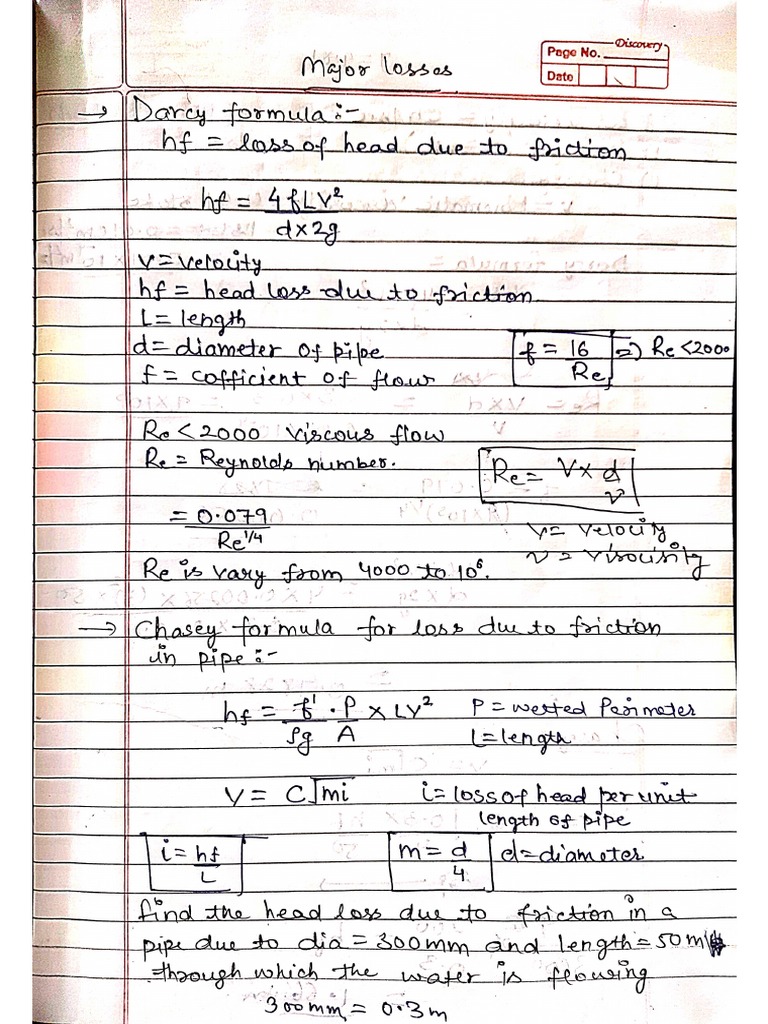 Discovery
Page No.
Date
Major losses
→ Darcy formula :-
hf = loss of head due to friction
hf = 4fLV²/d×2g
V = velocity
hf = head loss due to friction
L = length
d = diameter of pipe
f = 16/Re ⇒ Re < 2000
f = cofficient of flow
Re < 2000 viscous flow
Re = Reynolds number.
Re = V × d/ν
= 0.079/Re^1/4
V = velocity
ν = visocisity
Re is vary from 4000 to 10⁶.
→ Chasey formula for loss due to friction
in pipe :-
hf = f'/ρg · P/A × LV² P = wetted Perimeter
L = length
V = C√mi i = loss of head per unit
length of pipe
i = hf/L m = d/4 d = diameter
find the head loss due to friction in a
pipe due to dia = 300mm and length = 50m
through which the water is flowing
300mm = 0.3m